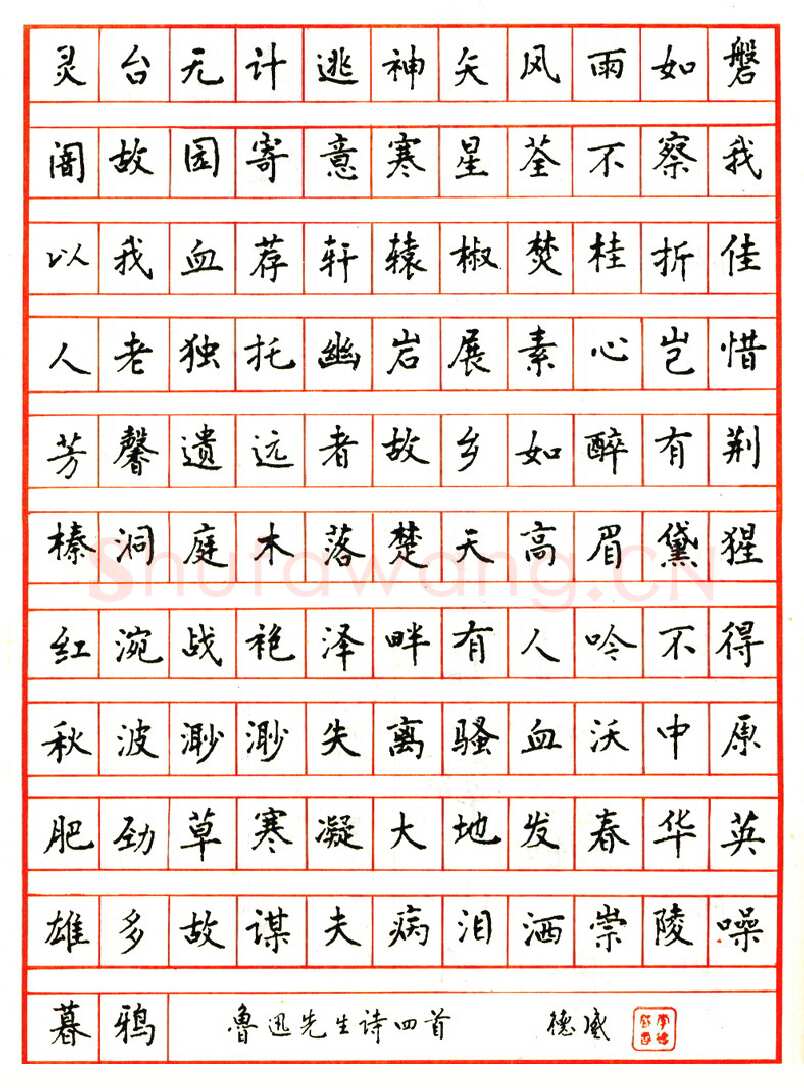 灵台无计逃神矢风雨如磐
闇故园寄意寒星荃不察我
以我血荐轩辕椒焚桂折佳
人老独托幽岩展素心岂惜
芳馨遗远者故乡如醉有荆
榛洞庭木落楚天高眉黛猩
红涴战袍泽畔有人吟不得
秋波渺渺失离骚血沃中原
肥劲草寒凝大地发春华英
雄多故谋夫病泪洒崇陵噪
暮鸦 鲁迅先生诗四首 德威
Shufawang.CN